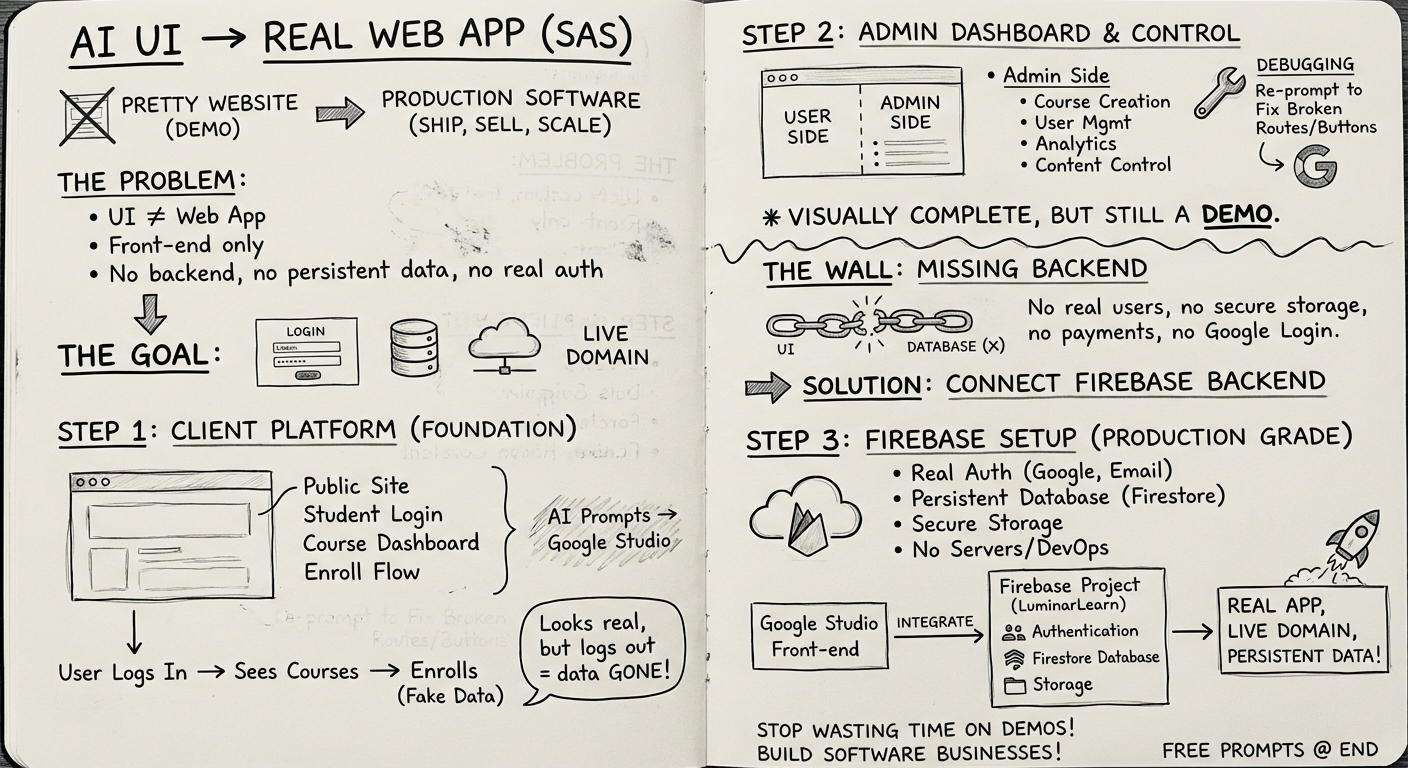 AI UI → REAL WEB APP (SAS)
PRETTY WEBSITE
(DEMO)
PRODUCTION SOFTWARE
(SHIP, SELL, SCALE)
THE PROBLEM:
• UI ≠ Web App
• Front-end only
• No backend, no persistent data, no real auth
THE GOAL:
LOGIN
LIVE
DOMAIN
STEP 1: CLIENT PLATFORM (FOUNDATION)
Public Site
Student Login
Course Dashboard
Enroll Flow
AI Prompts →
Google Studio
User Logs In → Sees Courses → Enrolls
(Fake Data)
Looks real,
but logs out
= data GONE!
Re-prompt to Fix Broken
Routes/Buttons
STEP 2: ADMIN DASHBOARD & CONTROL
USER
SIDE
ADMIN
SIDE
• Admin Side
• Course Creation
• User Mgmt
• Analytics
• Content Control
DEBUGGING
Re-prompt to
Fix Broken
Routes/Buttons
G
* VISUALLY COMPLETE, BUT STILL A DEMO.
THE WALL: MISSING BACKEND
UI
DATABASE (X)
No real users, no secure storage,
no payments, no Google Login.
SOLUTION: CONNECT FIREBASE BACKEND
STEP 3: FIREBASE SETUP (PRODUCTION GRADE)
• Real Auth (Google, Email)
• Persistent Database (Firestore)
• Secure Storage
• No Servers/DevOps
Google Studio
Front-end
INTEGRATE
Firebase Project
(LuminarLearn)
Authentication
Firestore Database
Storage
REAL APP,
LIVE DOMAIN,
PERSISTENT DATA!
STOP WASTING TIME ON DEMOS!
BUILD SOFTWARE BUSINESSES!
FREE PROMPTS @ END